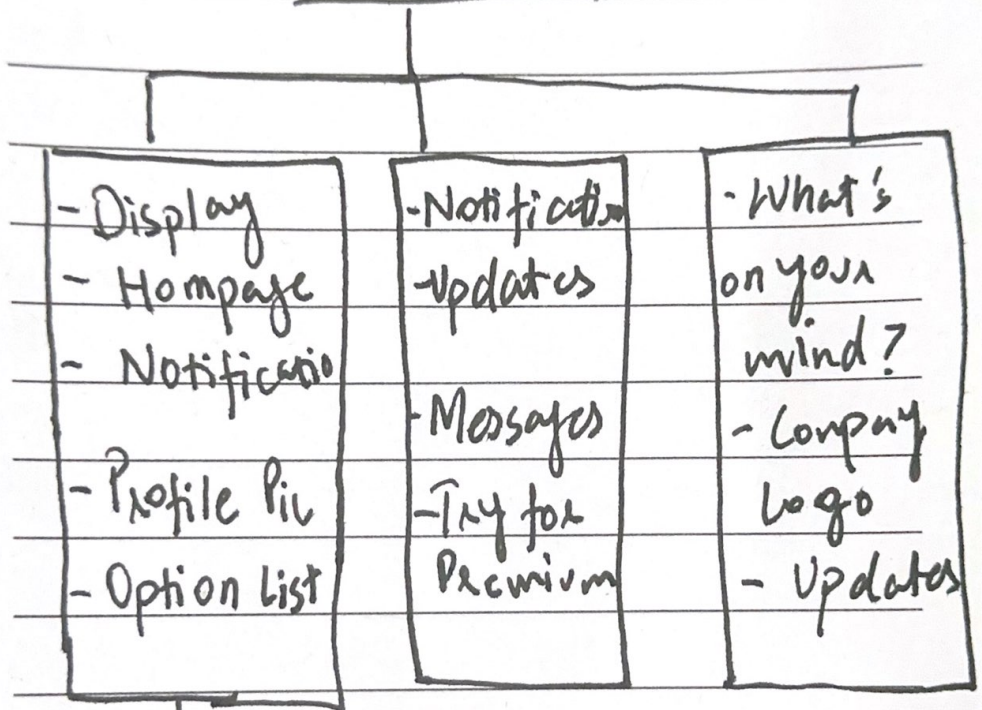 - Display
- Hompage
- Notificatio
- Profile Pic
- Option List
- Notification
- Updates
- Messages
- Try for
Premium
- What's
on your
mind?
- Conpany
Logo
- Updates